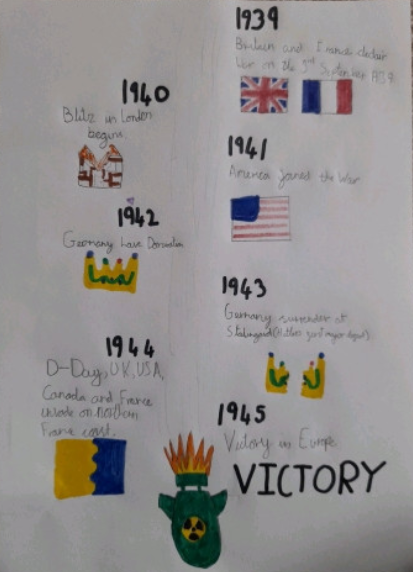 1939
Britain and France declair
War on the 3rd September 1939
1940
Blitz in London
begins
1941
America joined the War
1942
Germany have Domination
1943
Germany surrender at
Stalingrad (Hitlers first major defeat)
1944
D-Day, UK, USA,
Canada and France
invade on northern
France coast.
1945
Victory in Europe
VICTORY